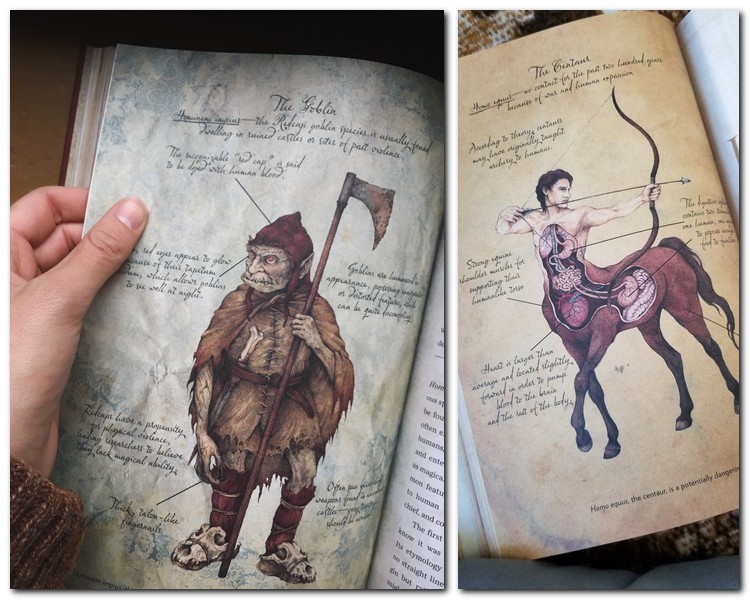 The Goblin
Hominem impius — the Redcap goblin species is usually found
dwelling in ruined castles or sites of past violence.
The recognizable "red cap" is said
to be dyed with human blood.
red eyes appear to glow
because of their tapetum
which allows goblins
to see well at night.
Goblins are humanoid in
appearance, possessing
or distorted features, which
can be quite
Redcaps have a propensity
for physical violence,
leading researchers to believe
they lack magical ability.
Thick, talon-like
fingernails
Often
weapons found in
castle
should be
Hom
ous sp
be fou
often e
humans,
and ente
as magica
mon featu
to human
chief, and co
The first
know it was
its etymology
no straight line
The Centaur
Homo equus — no contact for the past two hundred years
because of war and human expansion
According to theory, centaurs
may have originally taught
archery to humans.
The digestive
contains two
one human, one
to
food to
Strong equine
shoulder muscles for
supporting their
humanlike torso
Heart is larger than
average and located slightly
forward in order to pump
blood to the brain
and the rest of the body.
Homo equus, the centaur, is a potentially dangerou